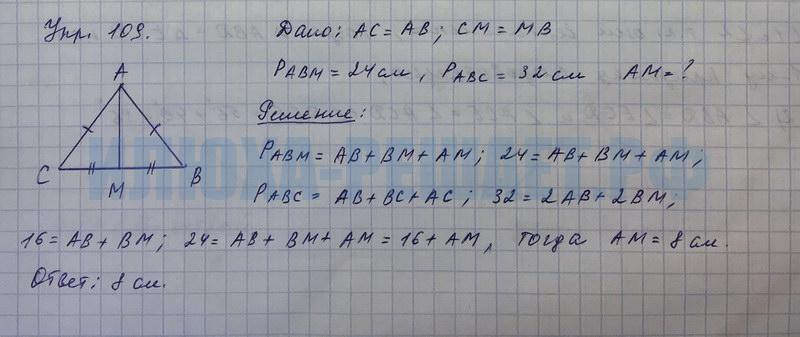 Упр. 109.
Дано: AC = AB; CM = MB
PABM = 24 см, PABC = 32 см AM = ?
Решение:
A
C
M
B
PABM = AB + BM + AM; 24 = AB + BM + AM;
PABC = AB + BC + AC; 32 = 2AB + 2BM;
16 = AB + BM; 24 = AB + BM + AM = 16 + AM, тогда AM = 8 см.
Ответ: 8 см.
ИЛЮХА-РЕШАЕТ.РФ